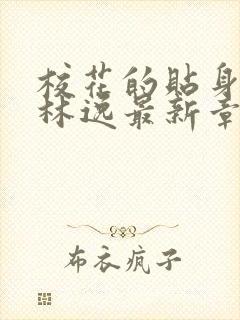 校花的贴身
林逸最新章
布衣疯子